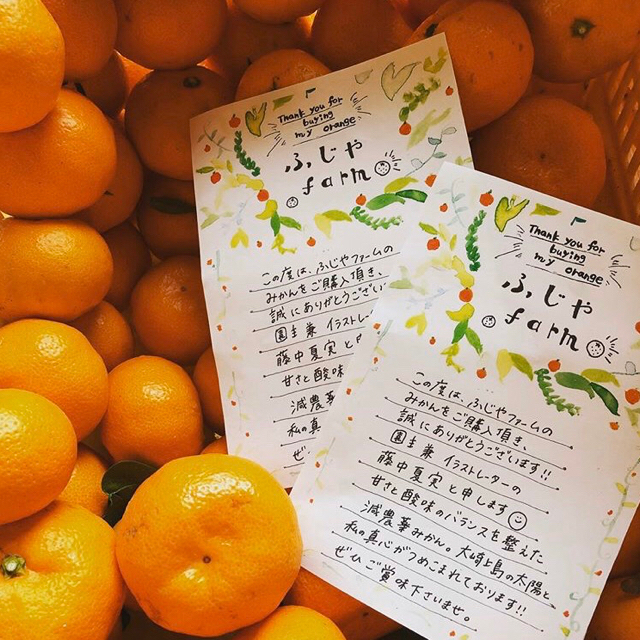 Thank you for
buying
my orange
ふじや
farm
この度は、ふじやファームの
みかんをご購入頂き、
誠にありがとうござい
園主兼 イラストレー
藤中夏実と
甘さと酸味
減農
私の真
ぜ
Thank you for
buying
my orange
ふじや
farm
この度は、ふじやファームの
みかんをご購入頂き、
誠にありがとうございます!!
園主兼 イラストレーターの
藤中夏実と申します
甘さと酸味のバランスを整えた
減農薬みかん。大崎上島の太陽と、
私の真心がつめこまれております!!
ぜひご賞味下さいませ。